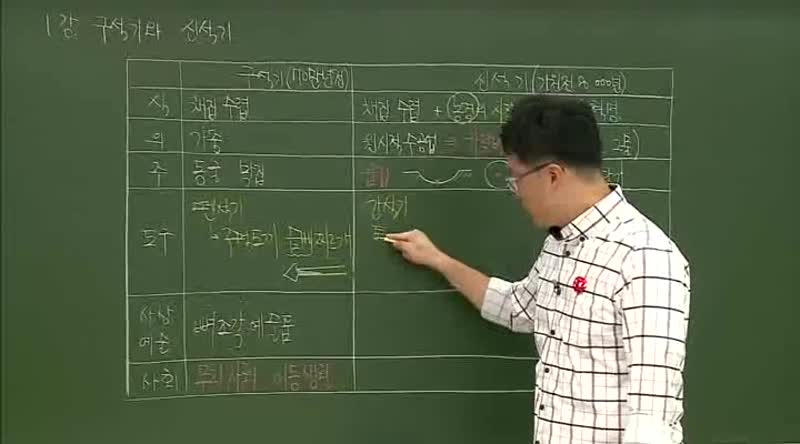 1강. 구석기와 신석기
구석기(70만년전) 신석기(기원전 8,000년)
식 채집 수렵 채집 수렵 + 농경의 시작 혁명
의 가죽 원시적 수공업 그물)
주 동굴 막집 움집
도구 뗀석기 간석기
주먹도끼 슴베찌르개
사상 예술 뼈조각 예술품
사회 무리사회 이동생활